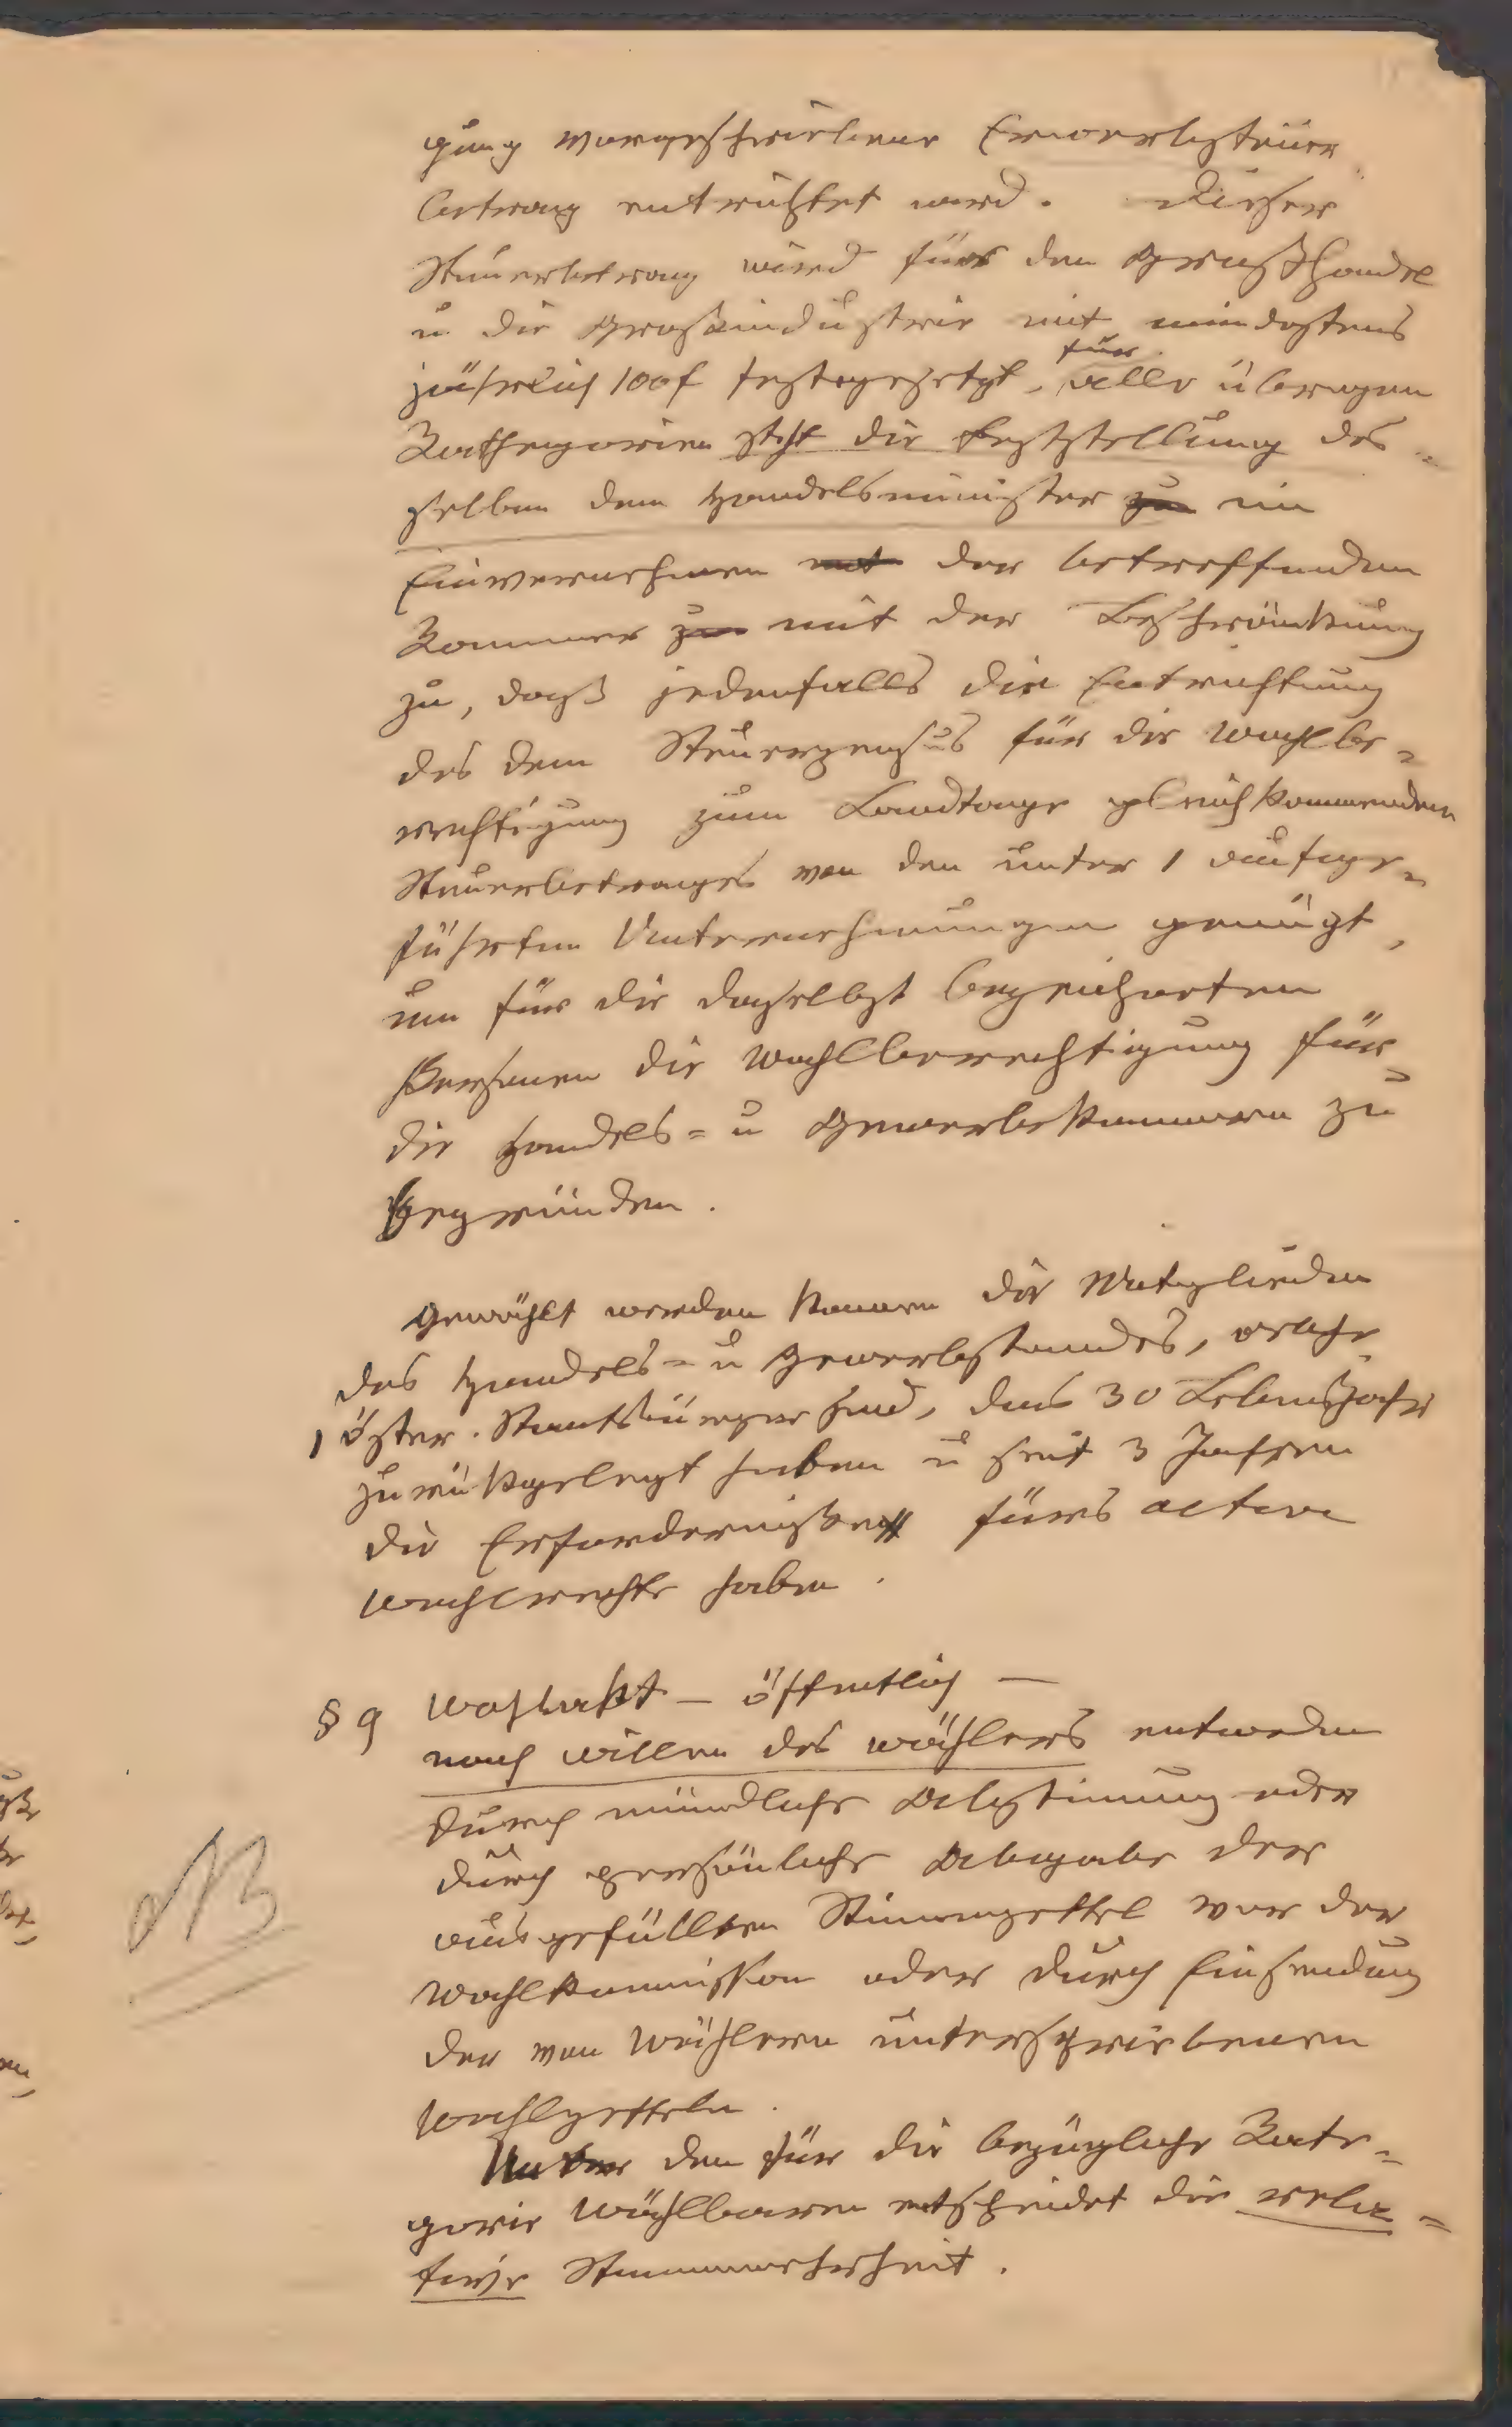 gung vorgeschriebener Erwerbsteuer
betrag entrichtet wird. Dieser
Steuerbetrag wird für den Großhandel
u. die Großindustrie mit mindestens
jährlich 100 f festgesetzt, für alle übrigen
Kathegorien steht die Festzstellung des=
selben dem Handelsminister zu im
Einvernehmen mit der betreffenden
Kammer zu mit der Beschränkung
zu, daß jedenfalls die Entrichtung
des dem Steuerzensus für die Wahlbe=
rechtigung zum Landtage gleichkommenden
Steuerbetrages von den unter 1 aufge=
führten Unternehmungen genügt,
um für die daselbst bezeichneten
Personen die Wahlberechtigung für
die Handels= u Gewerbekammern zu
begründen.
Gewählt werden können die Mitglieder
des Handels= u Gewerbstandes, welche
1 öster. Staatsbürger sind, das 30 Lebensjahr
zurückgelegt haben u seit 3 Jahren
die Erforderniße fürs active
Wahlrechte haben.
§ 9 Wahlakt – öffentlich –
nach Willen des Wählers entweder
durch mündliche Abstimung oder
durch persönliche Abgabe der
ausgefüllten Stimmzettel vor der
Wahlkommission oder durch Einsendung
der von Wählern unterschriebenen
Wahlzetteln.
NB
Unter den für die bezügliche Kate=
gorie Wählbaren entscheidet die rela=
tive Stimmenmehrheit.